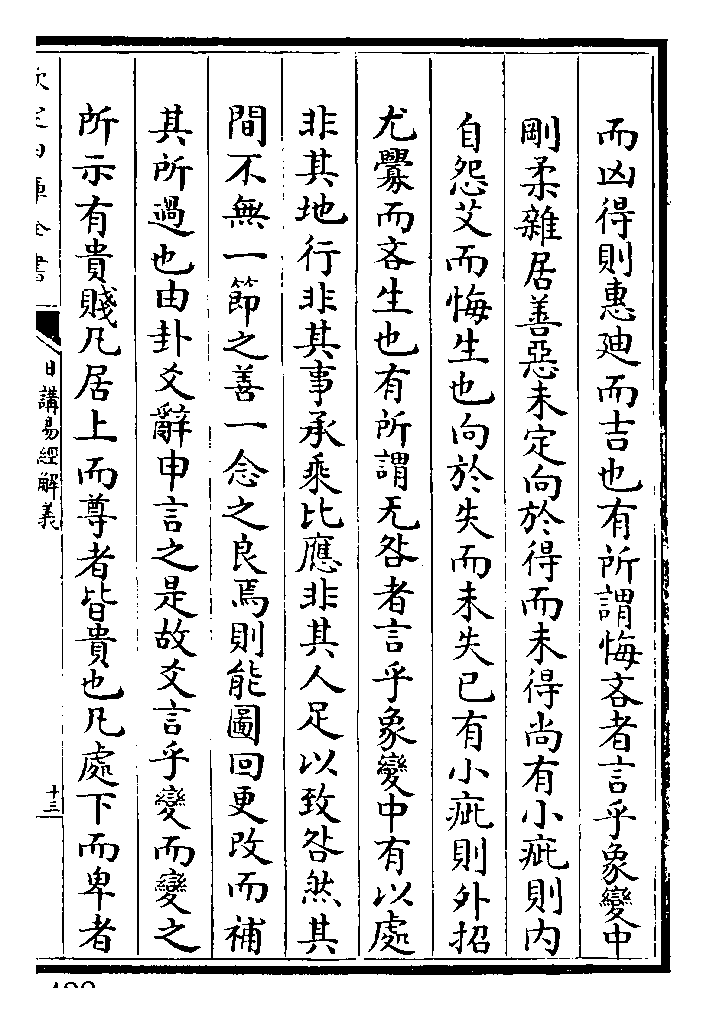 而凶得則惠廸而吉也有所謂悔吝者言乎象變中
剛柔雜居善惡未定向於得而未得尚有小疵則内
自怨艾而悔生也向於失而未失已有小疵則外招
尤釁而吝生也有所謂无咎者言乎象變中有以處
非其地行非其事承乘比應非其人足以致咎然其
間不無一節之善一念之良焉則能圖回更改而補
其所過也由卦爻辭申言之是故爻言乎變而變之
所示有貴賤凡居上而尊者皆貴也凡處下而卑者
欽定四庫全書
日講易經解義
十三